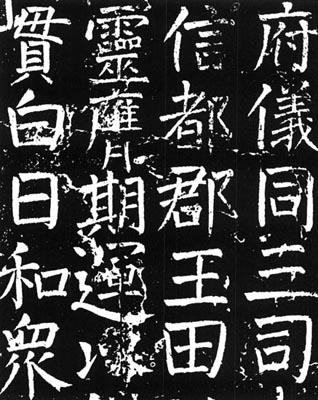 府儀同三司
信都郡王田
靈膺期運
貫白日和衆